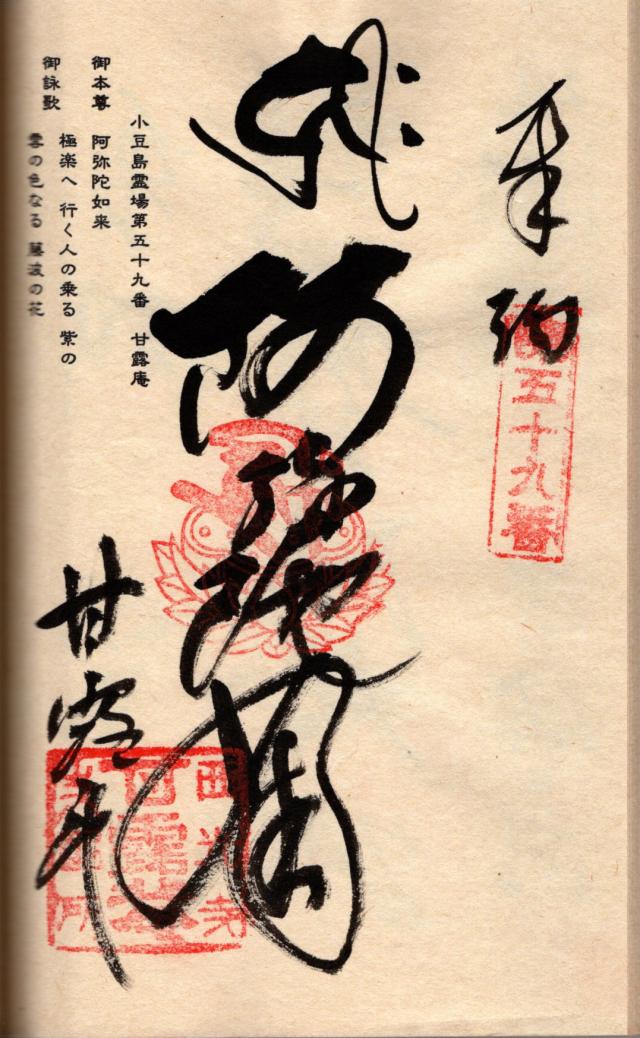 奉納
五十九番
阿弥陀
甘露庵
小豆島霊場第五十九番 甘露庵
御本尊 阿弥陀如来
御詠歌 極楽へ 行く人の乗る 紫の
雲の色なる 藤波の花